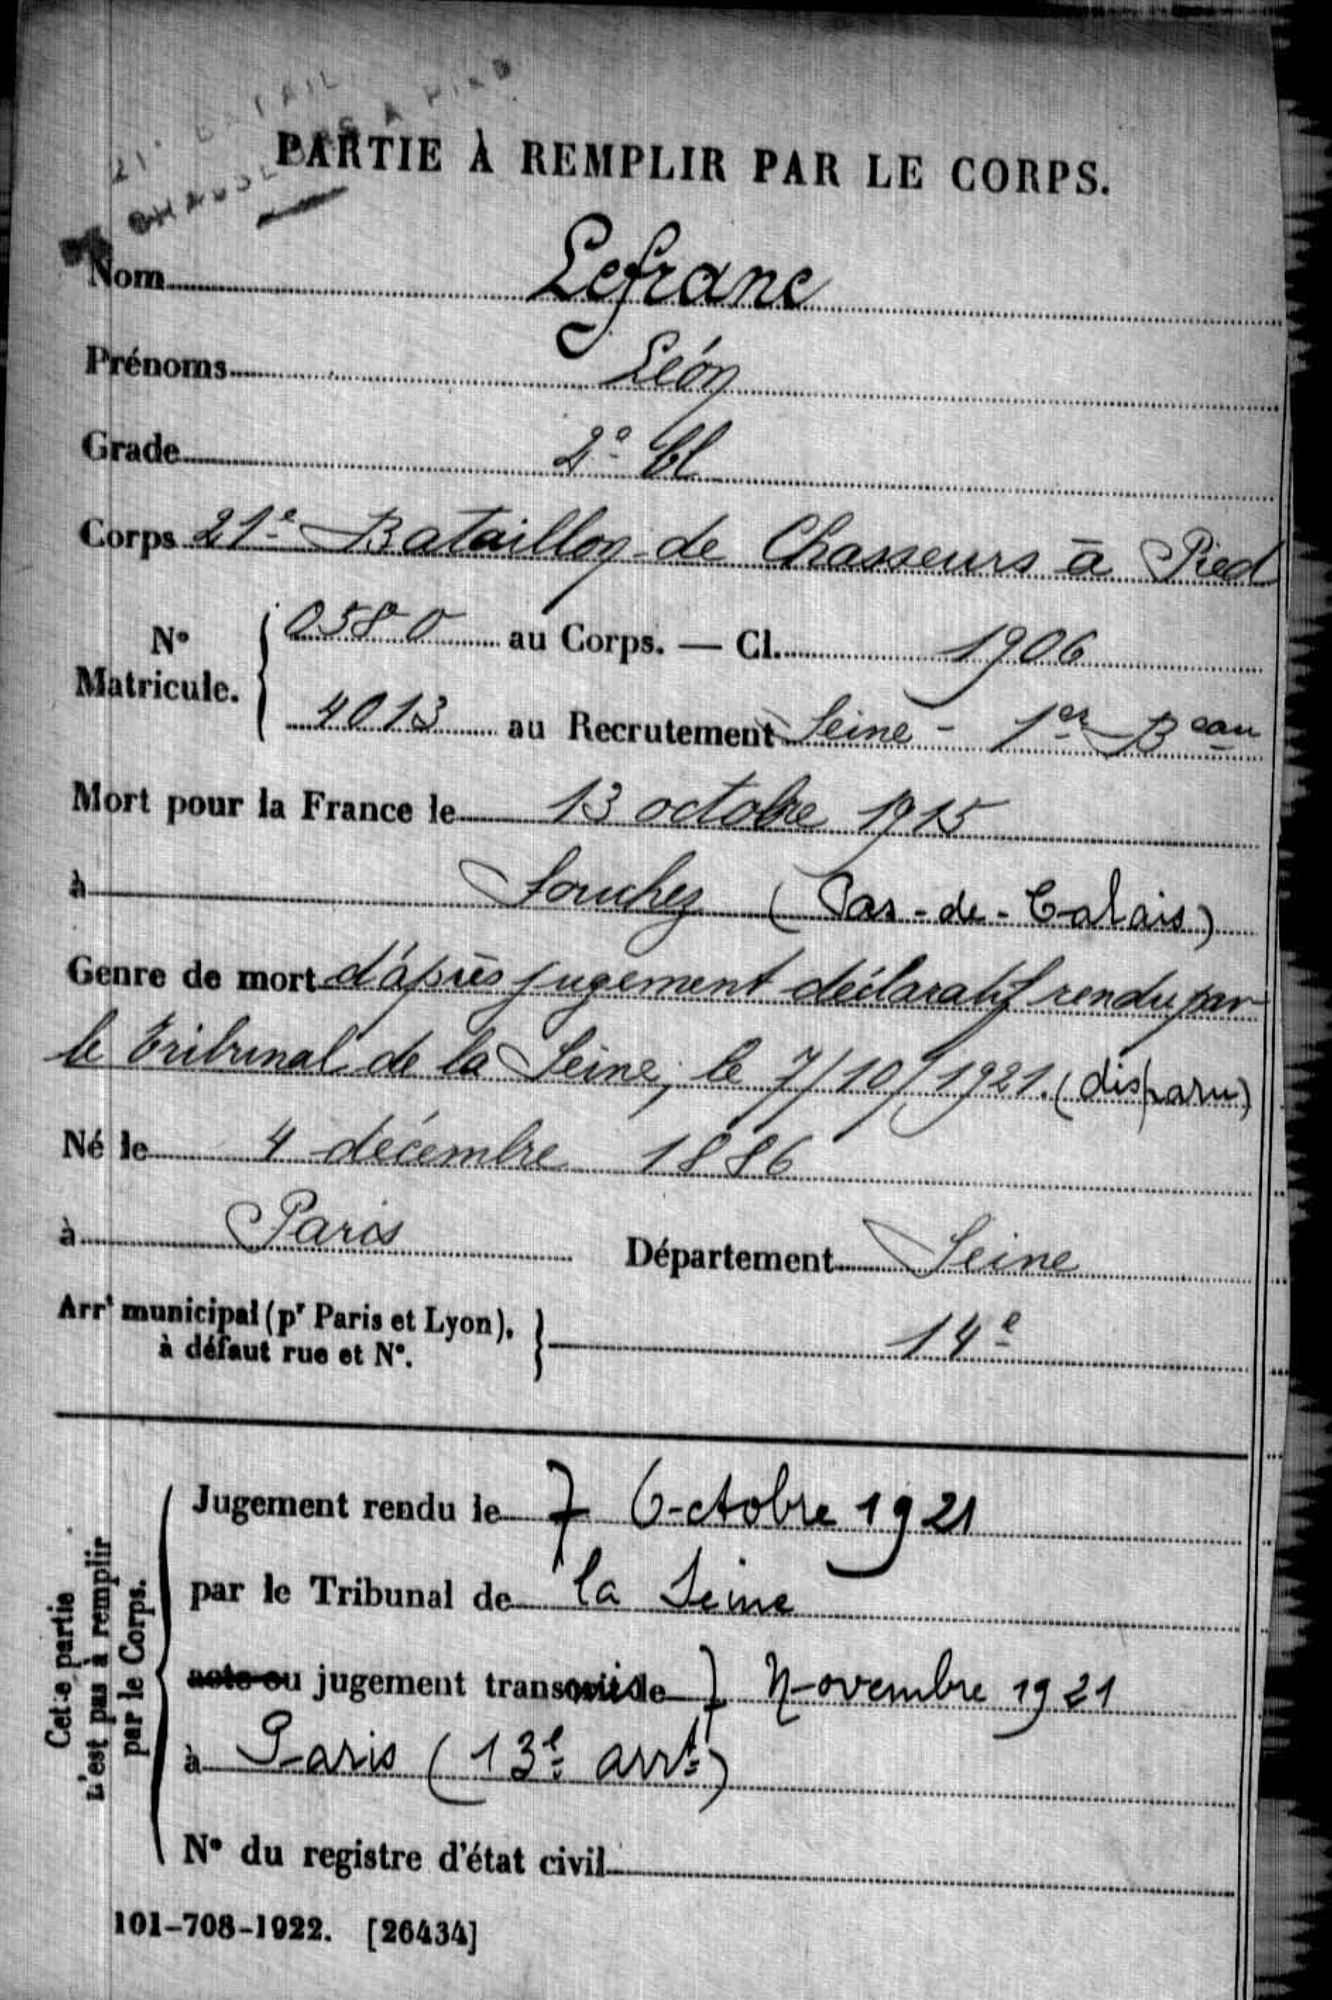 21e BATAIL
DE CHASSEURS A PIED
PARTIE À REMPLIR PAR LE CORPS.
Nom Lefranc
Prénoms Léon
Grade 2e Cl
Corps 21e Bataillon de Chasseurs à Pied
No Matricule. 0580 au Corps. — Cl. 1906
4013 au Recrutement Seine - 1er Beau
Mort pour la France le 13 octobre 1915
à Souchez (Pas-de-Calais)
Genre de mort d'après jugement déclaratif rendu par
le Tribunal de la Seine, le 7/10/1921. (disparu)
Né le 4 décembre 1886
à Paris Département Seine
Arrt municipal (pr Paris et Lyon), à défaut rue et No. 14e
Cette partie n'est pas à remplir par le Corps.
Jugement rendu le 7 Octobre 1921
par le Tribunal de la Seine
acte ou jugement transcrit le 7 Novembre 1921
à Paris (13e arrt)
No du registre d'état civil
101-708-1922. [26434]